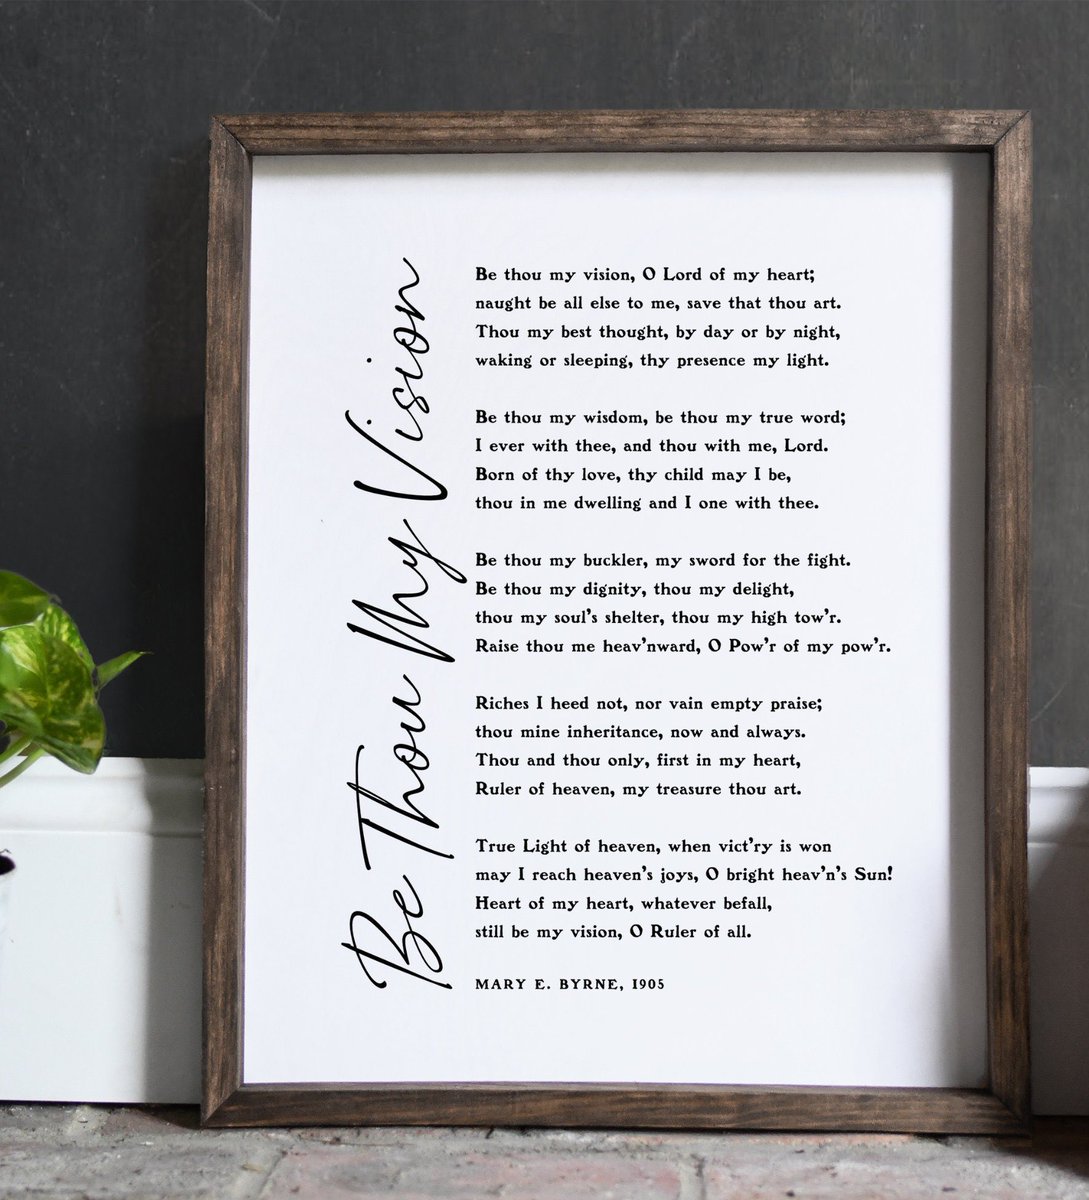 Be Thou My Vision
Be thou my vision, O Lord of my heart;
naught be all else to me, save that thou art.
Thou my best thought, by day or by night,
waking or sleeping, thy presence my light.
Be thou my wisdom, be thou my true word;
I ever with thee, and thou with me, Lord.
Born of thy love, thy child may I be,
thou in me dwelling and I one with thee.
Be thou my buckler, my sword for the fight.
Be thou my dignity, thou my delight,
thou my soul's shelter, thou my high tow'r.
Raise thou me heav'nward, O Pow'r of my pow'r.
Riches I heed not, nor vain empty praise;
thou mine inheritance, now and always.
Thou and thou only, first in my heart,
Ruler of heaven, my treasure thou art.
True Light of heaven, when vict'ry is won
may I reach heaven's joys, O bright heav'n's Sun!
Heart of my heart, whatever befall,
still be my vision, O Ruler of all.
MARY E. BYRNE, 1905